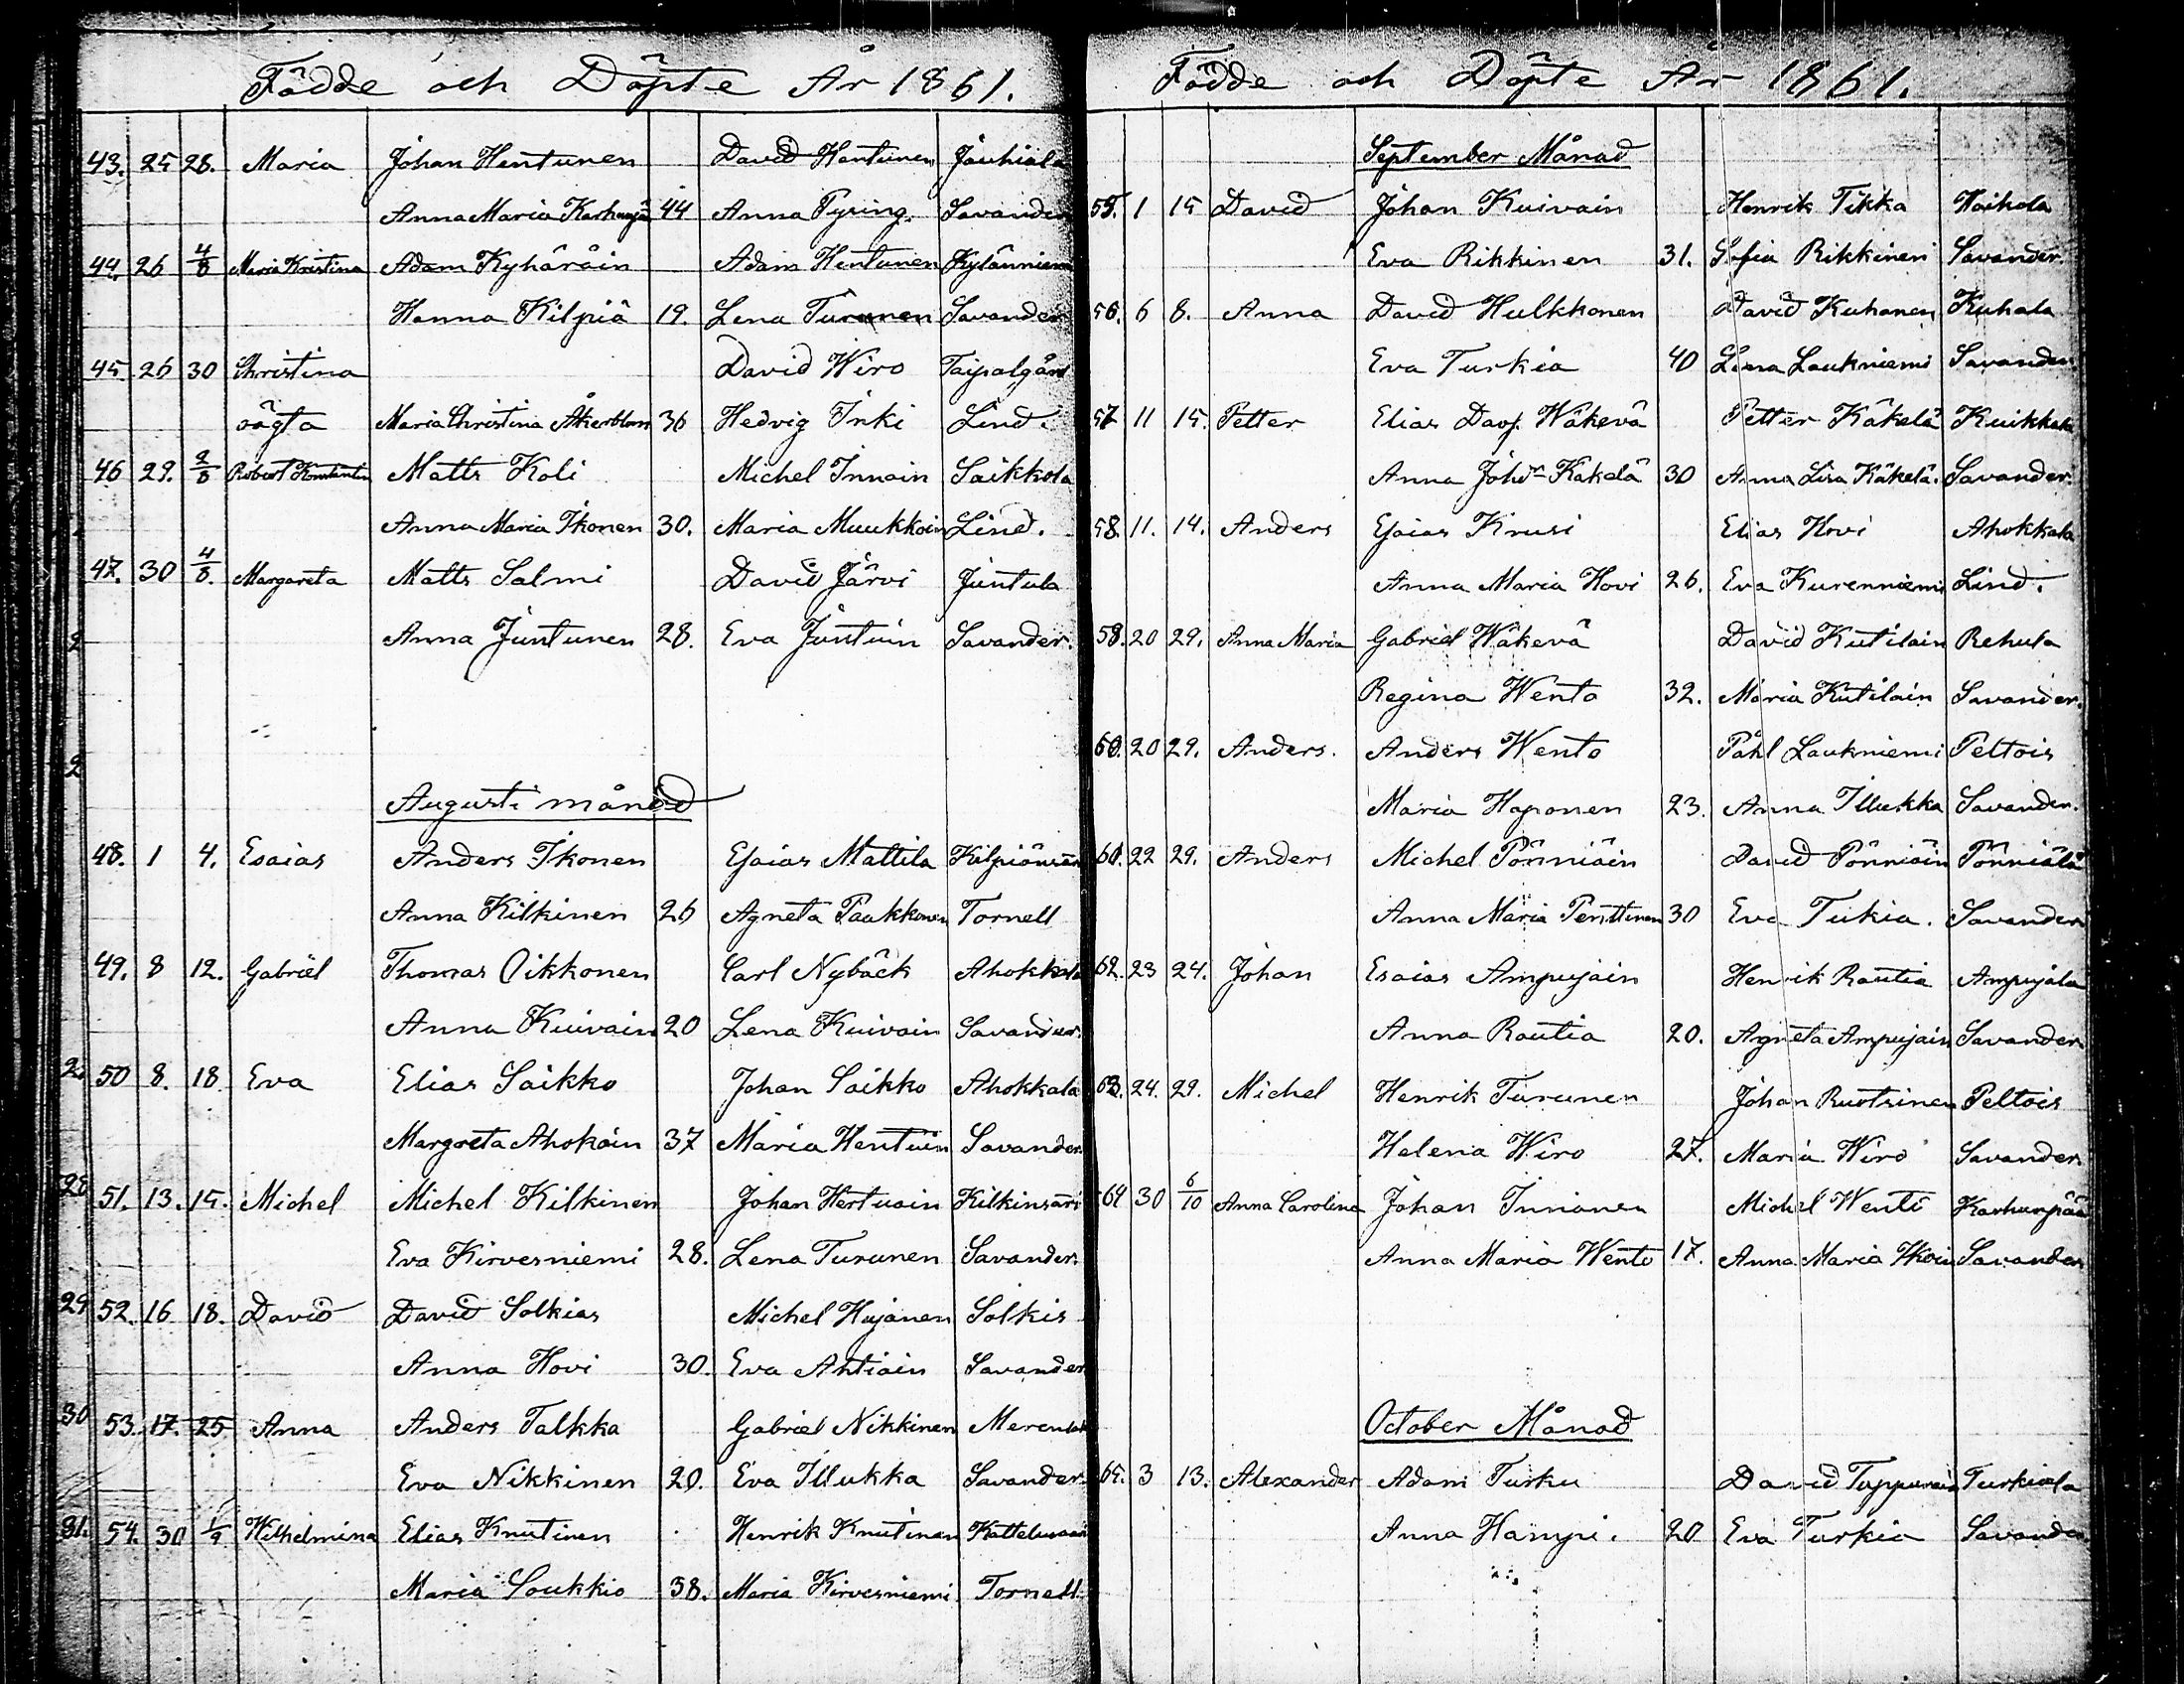 Födde och Döpte År 1861.
43. 25 28. Maria Johan Hentunen David Hentunen Jouhiala
Anna Maria Karhunpä 44 Anna Pyring. Savander
44. 26 4/8 Maria Kristina Adam Kyhäräin Adam Hentunen Kylänniemi
Hanna Kilpiä 19. Lena Turunen Savander
45 26 30 Christina David Wiro Taipalgård
oägta Maria Christina Åkerblom 36 Hedvig Inki Lind.
46 29. 2/8 Robert Konstantin Matts Koli Michel Innain Saikkola
Anna Maria Ikonen 30. Maria Muukkoin Lind.
47. 30 4/8. Margareta Matts Salmi David Järvi Juntula
Anna Juntunen 28. Eva Juntuin Savander.
Augusti månad
48. 1 4. Esaias Anders Ikonen Esaias Mattila
Anna Kilkinen 26 Agneta Paukkonen Tornell
49. 8 12. Gabriel Thomas Oikkonen Carl Nybäck Ahokkala
Anna Kuivain 20 Lena Kuivain Savander.
50 8. 18. Eva Elias Saikko Johan Saikko Ahokkala
Margreta Ahokain 37 Maria Hentuin Savander.
51. 13. 15. Michel Michel Kilkinen Johan Hertuain Kilkinsari
Eva Kirvesniemi 28. Lena Turunen Savander.
52. 16 18. David David Solkias Michel Hujanen Solkis
Anna Hovi 30. Eva Ahtiain Savander
53. 17. 25 Anna Anders Talkka Gabriel Nikkinen
Eva Nikkinen 20. Eva Illukka Savander.
54. 30 1/9 Wilhelmina Elias Knutinen Henrik Knutinen
Maria Soukkio 38. Maria Kirvesniemi Tornell.
Födde och Döpte År 1861.
September Månad
55. 1 15 David Johan Kuivain Henrik Tikka Haikola
Eva Rikkinen 31. Sofia Rikkinen Savander.
56. 6 8. Anna David Hulkkonen David Kuhanen Kuhala
Eva Turkia 40 Lena Laukniemi Savander.
57 11 15. Petter Elias Davp. Wäkevä Petter Käkelä Kuikkala
Anna Johdr Käkelä 30 Anna Lisa Käkelä. Savander.
58. 11. 14. Anders Esaias Krusi Elias Hovi Ahokkala
Anna Maria Hovi 26. Eva Kurenniemi Lind.
58. 20 29. Anna Maria Gabriel Wäkevä David Kutilain Rehula
Regina Wento 32. Maria Kutilain Savander.
60. 20 29. Anders. Anders Wento Påhl Laukniemi Peltois
Maria Haponen 23. Anna Illukka Savander.
61. 22 29. Anders Michel Pönniäin David Pönniäin Pönniälä
Anna Maria Penttinen 30 Eva Tukia. Savander
62. 23 24. Johan Esaias Ampujain Henrik Rautia Ampujala
Anna Rautia 20. Agneta Ampujain Savander
63. 24. 29. Michel Henrik Turunen Johan Ruotsinen Peltois
Helena Wiro 27. Maria Wiro Savander
64 30 6/10 Anna Carolina Johan Innanen Michel Wento Karhunpää
Anna Maria Wento 17. Anna Maria Savander
October Månad
65. 3 13. Alexander Adam Turku David Turkiala
Anna Hampi. 20 Eva Turkia Savander